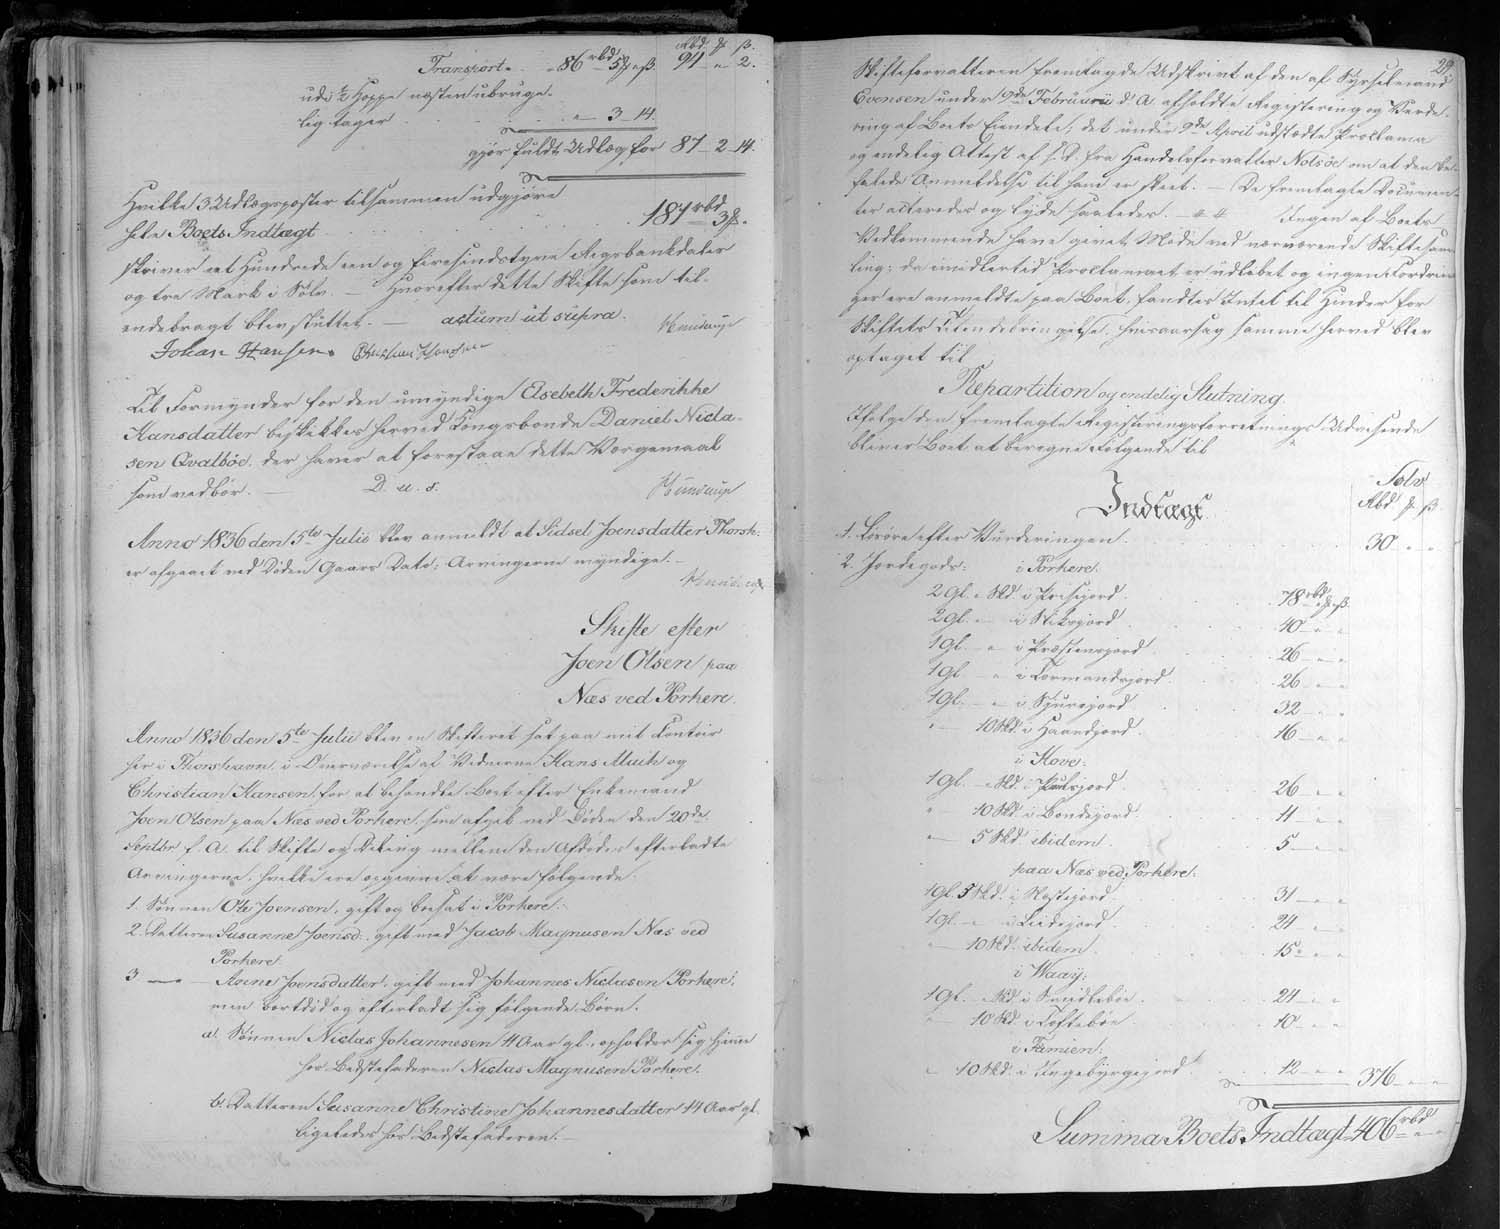 Rbd. ꝑ ß.
Transport. 86 rbd 5 ꝑ " ß. 94 " 2.
udi ½ Hoppe næsten ubruge-
lig tager " 3 14.
giør fuldt Udlæg for 87 - 2 - 14.
Hvilke 3 Udlægsposter tilsammen udgjøre
hele Boets Indtægt 187 rbd 3 ꝑ.
skriver et Hundrede een og Fiirsindstyve Rigsbankdaler
og tre Mark i Sølv. — Hvorefter dette Skifte som til-
endebragt blev sluttet. — actum ut supra.
Johan Hansen.
Til Formynder for den umyndige Elsebeth Frederikke
Hansdatter beskikkes herved Kongsbonde Daniel Nicla-
sen Qvalbøe, der haver at forestaae detteVærgemaal
som vedbør. — D. u. s.
Anno 1836 den 5te Julii blev anmeldt at Sidsel Joensdatter Thorsh:
er afgaaet ved Døden Gaars Dato; Arvingerne myndige. —
Skifte efter
Joen Olsen paa
Næs ved Porkere.
Anno 1836 den 5te Julii blev en Skifteret sat paa mit Contoir
her i Thorshavn i Overværelse af Vidnerne Hans Muih og
Christian Hansen, for at behandle Boet efter Enkemand
Joen Olsen paa Næs ved Porkere, som afgik ved Døden den 20de
Septbr f. A. til Skifte og Deling mellem den Afdødes efterladte
Arvingerne, hvilke ere opgivne at være følgende:
1. Sønnen Ole Joensen, gift og bosat i Porkere.
2. Datteren Susanne Joensd:, gift med Jacob Magnusen Næs ved
Porkere.
3 — Anne Joensdatter, gift med Johannes Niclasen Porkere,
men bortdød og efterladt sig følgende Børn.
a. Sønnen Niclas Johannesen 11 Aar gl., opholder sig hiime
hos Bedstefaderen Niclas Magnusen Porkere.
b. Datteren Susanne Christine Johannesdatter 14 Aar gl.
ligeledes hos Bedstefaderen. —
29
Skifteforvalteren fremlagde Udskrivt af den af Sysselmand
Evensen under 9de Februarii d. A. afholdte Registering og Vurde-
ring af Boets Eiendele, det under 9de April udstædte Proclama
og endelig Attest af f. D. fra Handelsforvalter Nolsøe om at den be-
falede Anmeldelse til ham er skeet. — De fremlagte Documen-
ter acteredes og lyde saaledes. — Ingen af Boets
Vedkommende have givet Møde ved nærværende Skiftesam-
ling; da imidlertid Proclamaet er udløbet og ingen Fordrin-
ger ere anmeldte paa Boet, fandtes Intet til Hinder for
Skiftets Tilendebringelse, hvisaarsag samme herved blev
optaget til
Repartition og endelig Slutning.
Ifølge den fremlagte Registeringsforretnings Udvisende
bliver Boet at beregne Følgende til
Indtægt.
Sølv
Rbd ꝑ ß.
1. Løsøre efter Vurderingen. 30 " "
2. Jordegods: i Porkere:
2 Gl. " Skd. i Prisijord. 78 rbd " ꝑ " ß.
2 Gl. — " i 40 — " "
1 Gl. — " i Præstensjord. 26 — " "
1 Gl. — " i Formandsjord. 26 — " "
1 Gl. — " i 32 — " "
" — 10 Skd. i Haandjord. 16 — " "
i Hove:
1 Gl. — " Skd. i 26 — " "
" 10 Skd. i Bondejord. 11 — " "
" — 5 Skd. ibidem. 5 — " "
paa Næs ved Porkere:
1 Gl. 5 Skd. i 31 — " "
1 Gl. — " i 24 — " "
" — 10 Skd. ibidem. 15 — " "
i Waaj:
1 Gl. — " Skd. i 24 — " "
" — 10 Skd. i Toftebøe. 10 — " "
i Famien:
" 10 Skd. i Ungebyrgejord. 12 — " " 376 — " "
Summa Boets Indtægt 406 rbd " "